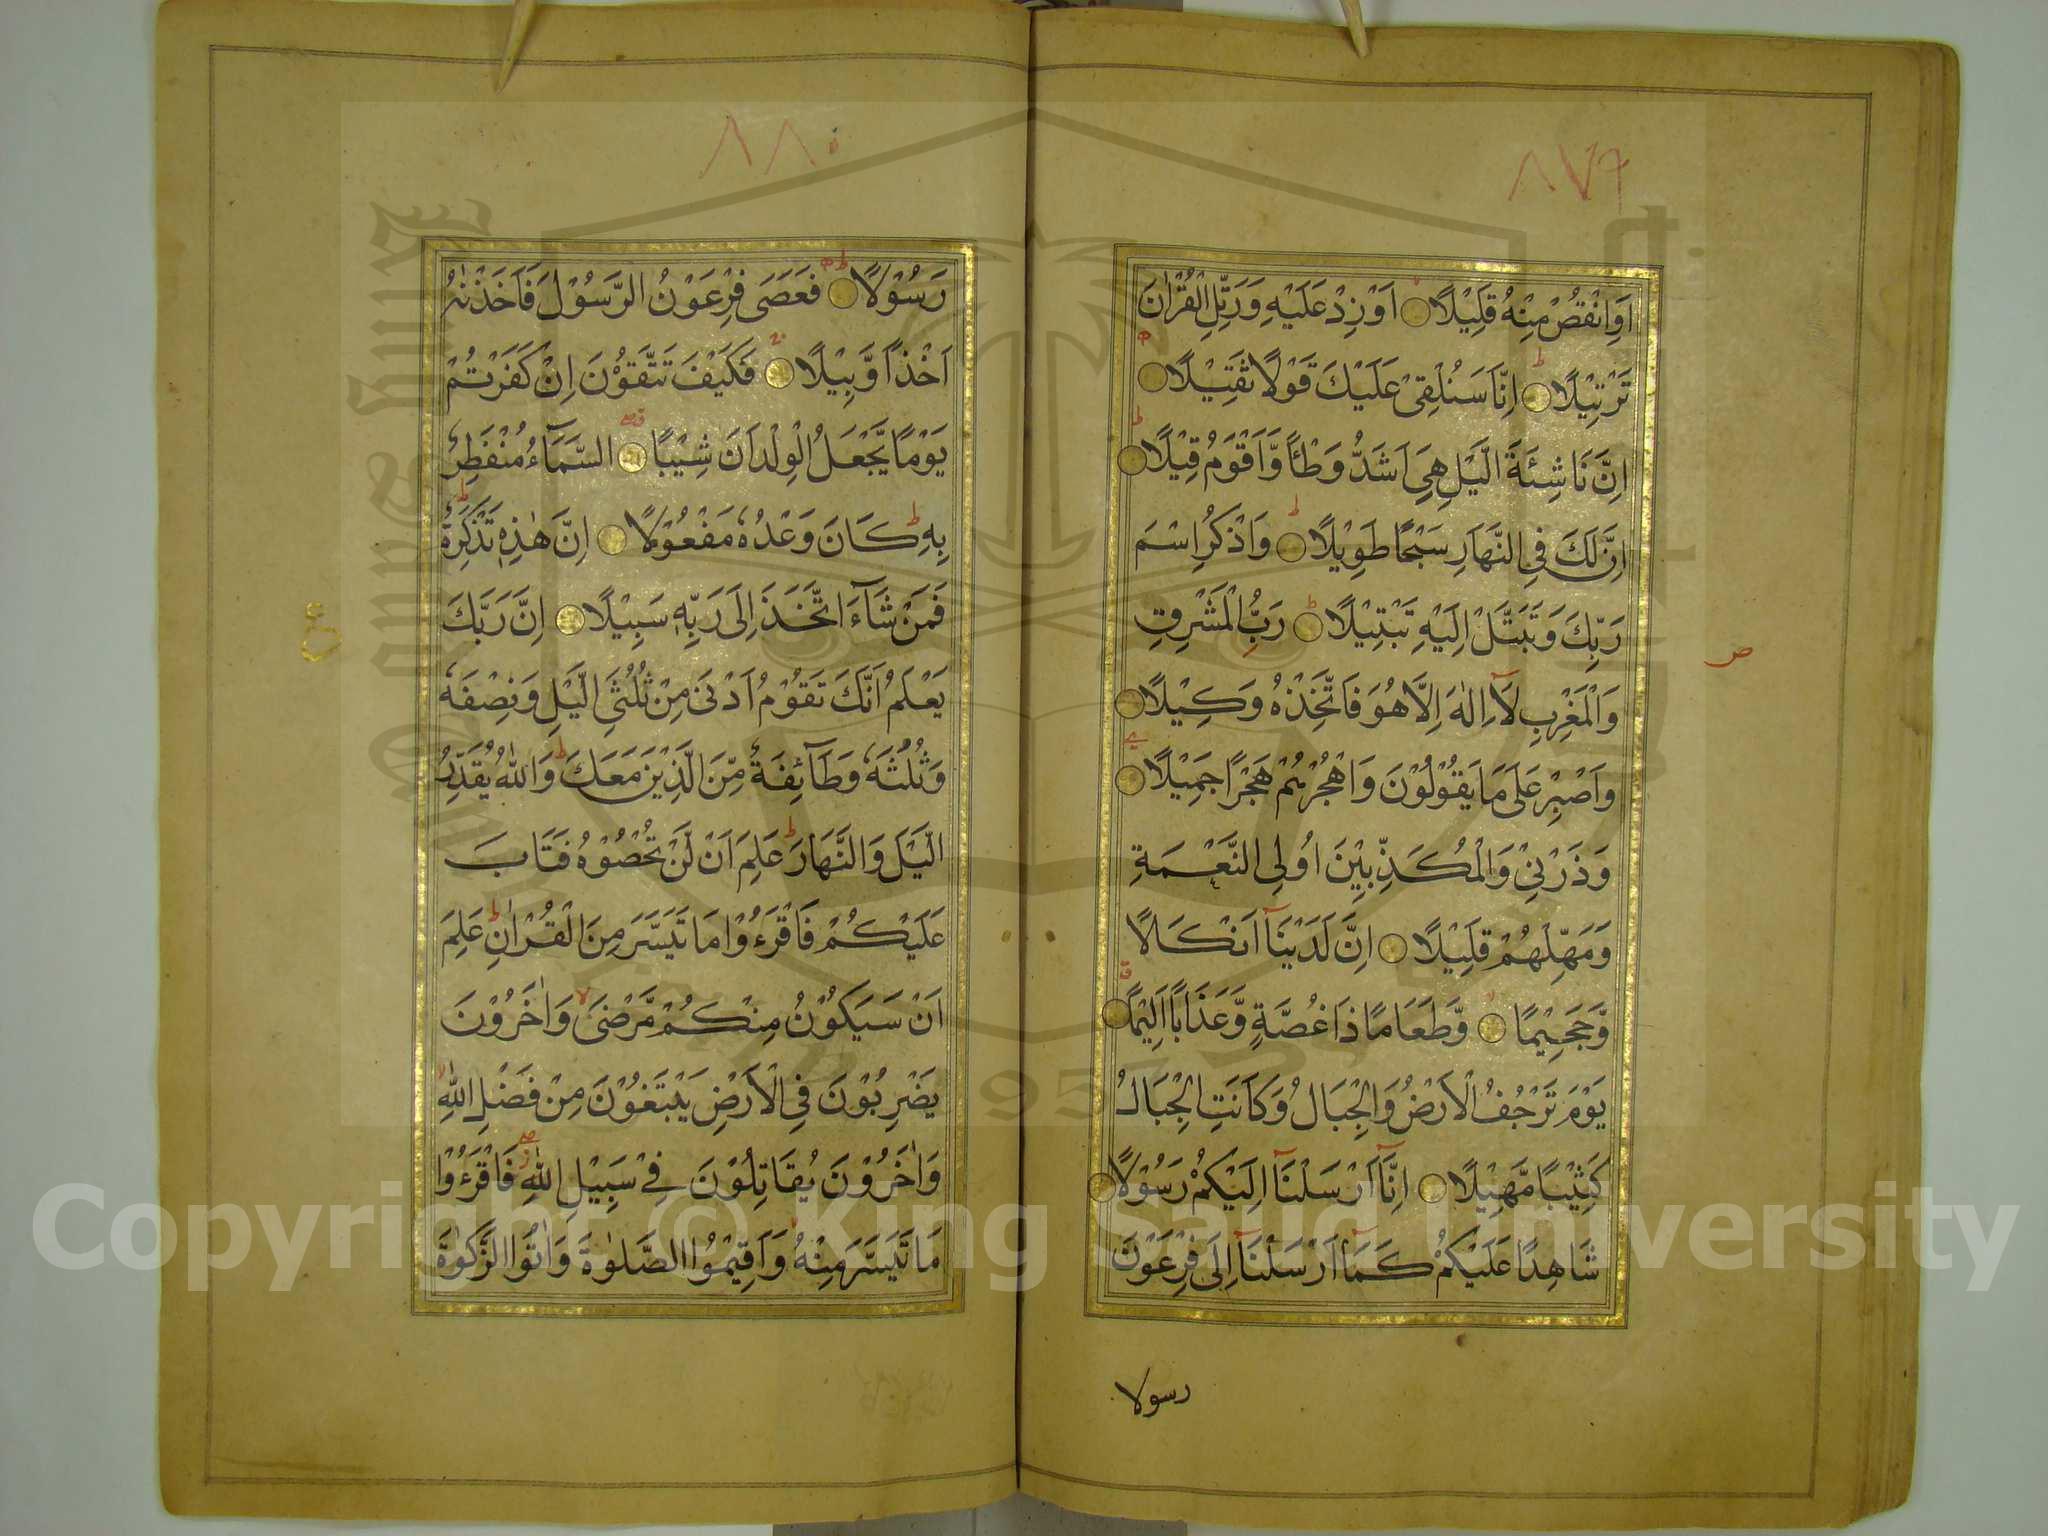 ٨٧٩
اَوِانْقُصْ مِنْهُ قَلِيْلًا اَوْزِدْ عَلَيْهِ وَرَتِّلِ الْقُرْاٰنَ
تَرْتِيْلًا اِنَّا سَنُلْقِيْ عَلَيْكَ قَوْلًا ثَقِيْلًا
اِنَّ نَاشِئَةَ الَّيْلِ هِيَ اَشَدُّ وَطْأً وَّاَقْوَمُ قِيْلًا
اِنَّ لَكَ فِي النَّهَارِ سَبْحًا طَوِيْلًا وَاذْكُرِ اسْمَ
رَبِّكَ وَتَبَتَّلْ اِلَيْهِ تَبْتِيْلًا رَبُّ الْمَشْرِقِ
وَالْمَغْرِبِ لَآ اِلٰهَ اِلَّا هُوَ فَاتَّخِذْهُ وَكِيْلًا
وَاصْبِرْ عَلَى مَا يَقُوْلُوْنَ وَاهْجُرْهُمْ هَجْرًا جَمِيْلًا
وَذَرْنِيْ وَالْمُكَذِّبِيْنَ اُولِي النَّعْمَةِ
وَمَهِّلْهُمْ قَلِيْلًا اِنَّ لَدَيْنَآ اَنْكَالًا
وَّجَحِيْمًا وَّطَعَامًا ذَا غُصَّةٍ وَّعَذَابًا اَلِيْمًا
يَوْمَ تَرْجُفُ الْاَرْضُ وَالْجِبَالُ وَكَانَتِ الْجِبَالُ
كَثِيْبًا مَّهِيْلًا اِنَّآ اَرْسَلْنَآ اِلَيْكُمْ رَسُوْلًا
شَاهِدًا عَلَيْكُمْ كَمَآ اَرْسَلْنَآ اِلَى فِرْعَوْنَ
رسولا
ص
٨٨٠
رَسُوْلًا فَعَصَى فِرْعَوْنُ الرَّسُوْلَ فَاَخَذْنٰهُ
اَخْذًا وَّبِيْلًا فَكَيْفَ تَتَّقُوْنَ اِنْ كَفَرْتُمْ
يَوْمًا يَّجْعَلُ الْوِلْدَانَ شِيْبًا السَّمَآءُ مُنْفَطِرٌ
بِهٖ كَانَ وَعْدُهٗ مَفْعُوْلًا اِنَّ هٰذِهٖ تَذْكِرَةٌ
فَمَنْ شَآءَ اتَّخَذَ اِلَى رَبِّهٖ سَبِيْلًا اِنَّ رَبَّكَ
يَعْلَمُ اَنَّكَ تَقُوْمُ اَدْنَى مِنْ ثُلُثَيِ الَّيْلِ وَنِصْفَهٗ
وَثُلُثَهٗ وَطَآئِفَةٌ مِّنَ الَّذِيْنَ مَعَكَ وَاللّٰهُ يُقَدِّرُ
الَّيْلَ وَالنَّهَارَ عَلِمَ اَنْ لَّنْ تُحْصُوْهُ فَتَابَ
عَلَيْكُمْ فَاقْرَءُوْا مَا تَيَسَّرَ مِنَ الْقُرْاٰنِ عَلِمَ
اَنْ سَيَكُوْنُ مِنْكُمْ مَّرْضَى وَاٰخَرُوْنَ
يَضْرِبُوْنَ فِي الْاَرْضِ يَبْتَغُوْنَ مِنْ فَضْلِ اللّٰهِ
وَاٰخَرُوْنَ يُقَاتِلُوْنَ فِيْ سَبِيْلِ اللّٰهِ فَاقْرَءُوْا
مَا تَيَسَّرَ مِنْهُ وَاَقِيْمُوا الصَّلٰوةَ وَاٰتُوا الزَّكٰوةَ
ع
Copyright © King Saud University